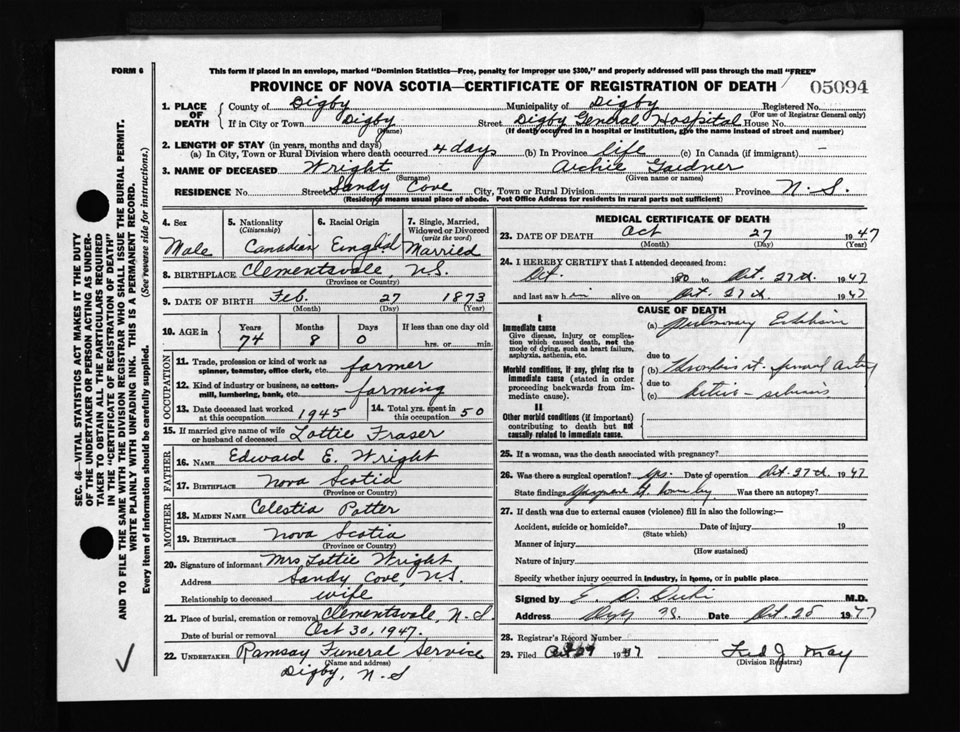 FORM 6
This form if placed in an envelope, marked "Dominion Statistics—Free, penalty for improper use $300," and properly addressed will pass through the mail "FREE"
PROVINCE OF NOVA SCOTIA—CERTIFICATE OF REGISTRATION OF DEATH
05094
1. PLACE OF DEATH County of Digby Municipality of Digby Registered No.
(For use of Registrar General only)
If in City or Town Digby Street Digby General Hospital House No.
(Name) (If death occurred in a hospital or institution, give the name instead of street and number)
2. LENGTH OF STAY (in years, months and days)
(a) In City, Town or Rural Division where death occurred 4 days (b) In Province life (c) In Canada (if immigrant) —
3. NAME OF DECEASED Wright Archie Gardner
(Surname) (Given name or names)
RESIDENCE No. Street Sandy Cove City, Town or Rural Division Province N.S.
(Residence means usual place of abode. Post Office Address for residents in rural parts not sufficient)
4. Sex
Male
5. Nationality
(Citizenship)
Canadian
6. Racial Origin
English
7. Single, Married, Widowed or Divorced
(write the word)
Married
8. BIRTHPLACE Clementsvale, N.S.
(Province or Country)
9. DATE OF BIRTH Feb. 27 1873
(Month) (Day) (Year)
10. AGE in Years Months Days If less than one day old
74 8 0 hrs. or min.
OCCUPATION
11. Trade, profession or kind of work as spinner, teamster, office clerk, etc. farmer
12. Kind of industry or business, as cotton-mill, lumbering, bank, etc. farming
13. Date deceased last worked at this occupation 1945
14. Total yrs. spent in this occupation 50
15. If married give name of wife or husband of deceased Lottie Fraser
FATHER
16. NAME Edward E. Wright
17. BIRTHPLACE Nova Scotia
(Province or Country)
MOTHER
18. MAIDEN NAME Celestia Potter
19. BIRTHPLACE Nova Scotia
(Province or Country)
20. Signature of informant Mrs Lottie Wright
Address Sandy Cove, N.S.
Relationship to deceased wife
21. Place of burial, cremation or removal Clementsvale, N.S
Date of burial or removal Oct 30, 1947.
22. UNDERTAKER Ramsay Funeral Service
(Name and address)
Digby, N.S
MEDICAL CERTIFICATE OF DEATH
23. DATE OF DEATH Oct 27 1947
(Month) (Day) (Year)
24. I HEREBY CERTIFY that I attended deceased from:
Oct. to Oct. 27th 1947
and last saw him alive on Oct. 27th 1947
CAUSE OF DEATH
I
Immediate cause
Give disease, injury or complication which caused death, not the mode of dying, such as heart failure, asphyxia, asthenia, etc.
(a) pulmonary
due to
Morbid conditions, if any, giving rise to immediate cause (stated in order proceeding backwards from immediate cause).
(b)
due to
(c)
II
Other morbid conditions (if important) contributing to death but not causally related to immediate cause.
25. If a woman, was the death associated with pregnancy?
26. Was there a surgical operation? yes. Date of operation Oct. 27th. 1947
State findings Was there an autopsy?
27. If death was due to external causes (violence) fill in also the following:—
Accident, suicide or homicide? Date of injury 19
(State which)
Manner of injury
(How sustained)
Nature of injury
Specify whether injury occurred in industry, in home, or in public place
Signed by M.D.
Address Date Oct. 1947
28. Registrar's Record Number
29. Filed Oct 1947 Fred J. May
(Division Registrar)
SEC. 46—VITAL STATISTICS ACT MAKES IT THE DUTY
OF THE UNDERTAKER OR PERSON ACTING AS UNDER-
TAKER TO OBTAIN ALL THE PARTICULARS REQUIRED
IN THE "CERTIFICATE OF REGISTRATION OF DEATH"
AND TO FILE THE SAME WITH THE DIVISION REGISTRAR WHO SHALL ISSUE THE BURIAL PERMIT.
WRITE PLAINLY WITH UNFADING INK. THIS IS A PERMANENT RECORD.
Every item of information should be carefully supplied. (See reverse side for instructions.)